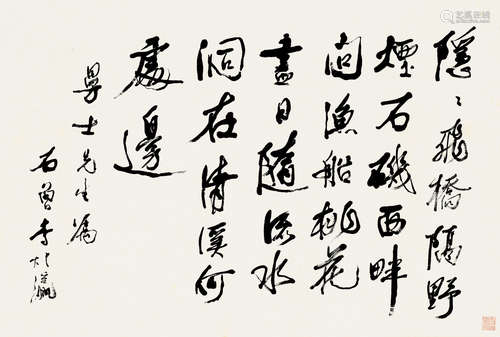 隱〻飛橋隔野
煙石磯西畔
問漁船桃花
盡日隨流水
洞在清溪何
處邊
學士先生屬
石曾李煜瀛